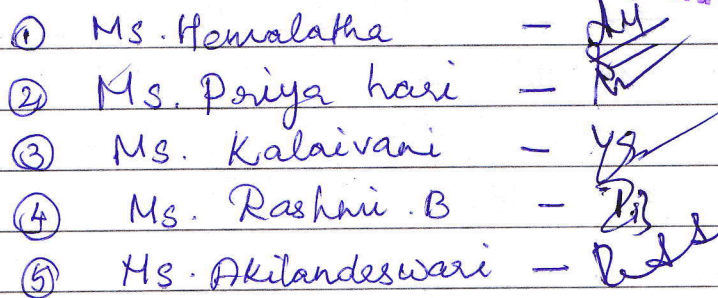 ① Ms. Hemalatha -
② Ms. Priya hari -
③ Ms. Kalaivani -
④ Ms. Rashmi . B -
⑤ Ms. Akilandeswari -